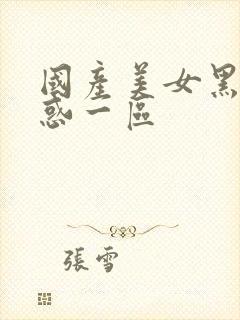 國產美女黑
惑一區
張雪